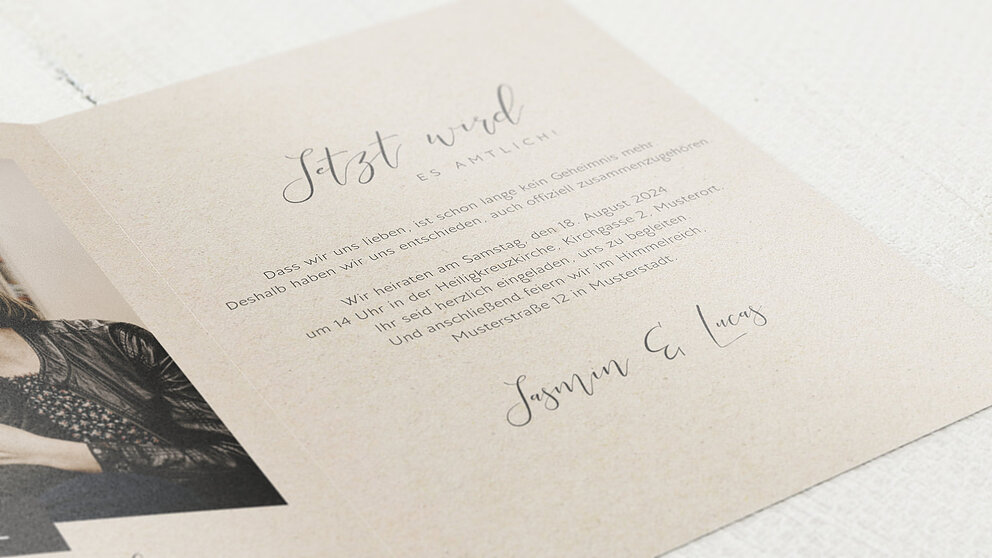 Jetzt wird
ES AMTLICH!
Dass wir uns lieben, ist schon lange kein Geheimnis mehr.
Deshalb haben wir uns entschieden, auch offiziell zusammenzugehören
Wir heiraten am Samstag, den 18. August 2024
um 14 Uhr in der Heiligkreuzkirche, Kirchgasse 2, Musterort.
Ihr seid herzlich eingeladen, uns zu begleiten
Und anschließend feiern wir im Himmelreich,
Musterstraße 12 in Musterstadt.
Jasmin & Lucas